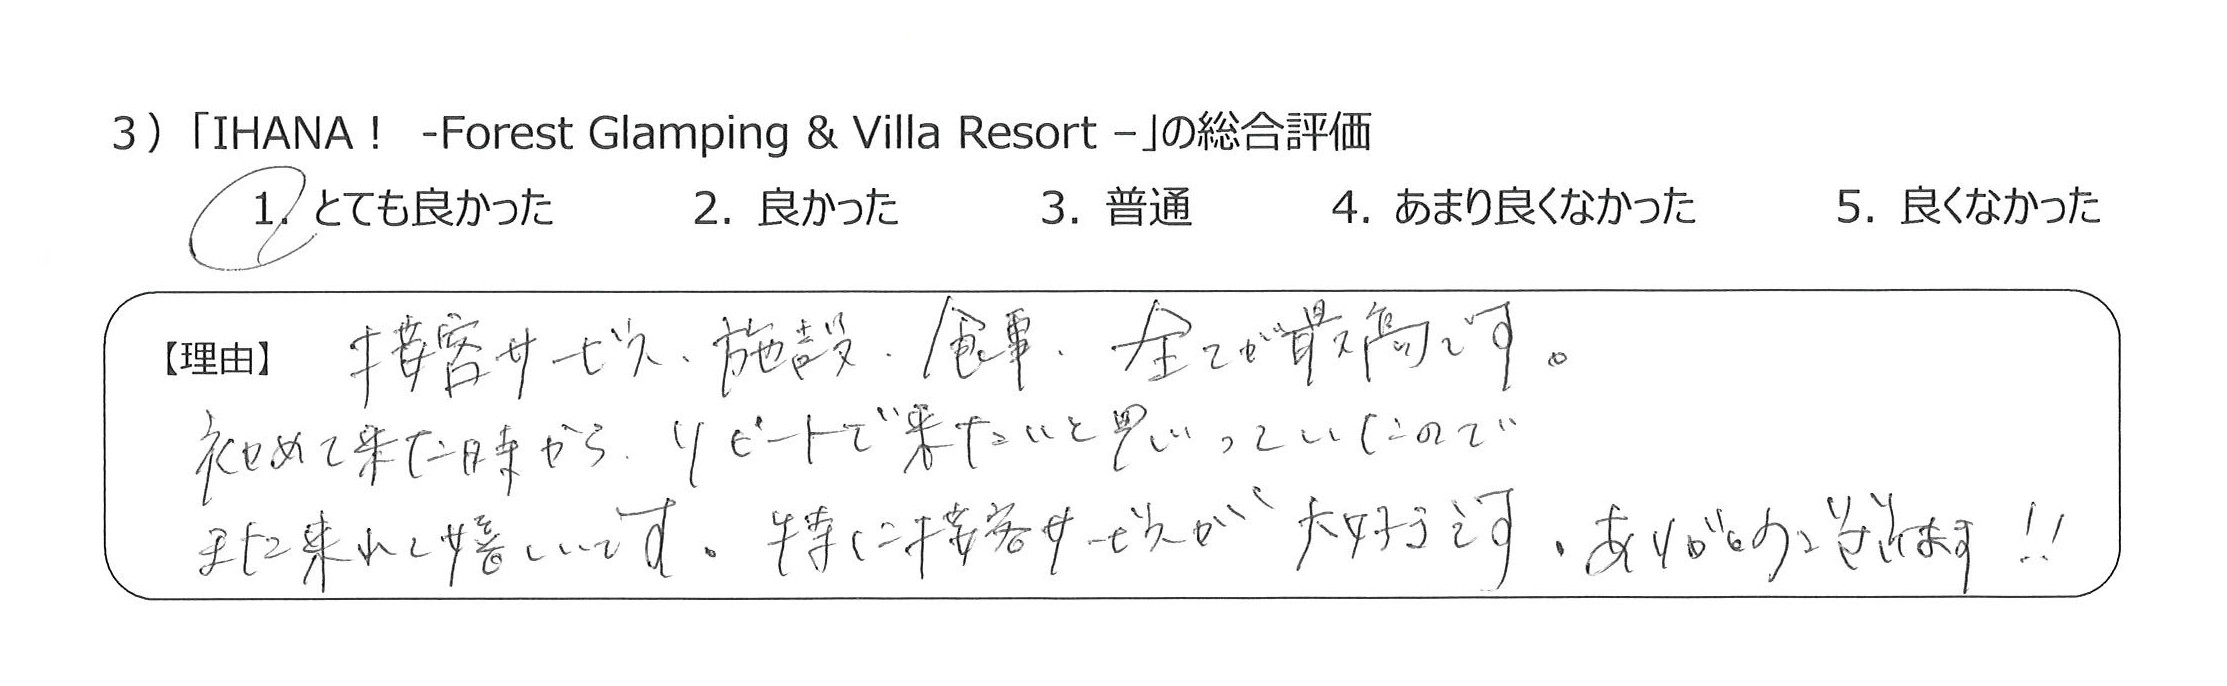 3）「IHANA！ -Forest Glamping & Villa Resort –」の総合評価
1. とても良かった 2. 良かった 3. 普通 4. あまり良くなかった 5. 良くなかった
【理由】 接客サービス、施設、食事、全てが最高です。
初めて来た時から、リピートで来たいと思っていたので
また来れて嬉しいです。特に接客サービスが大好きです、ありがとうございます!!